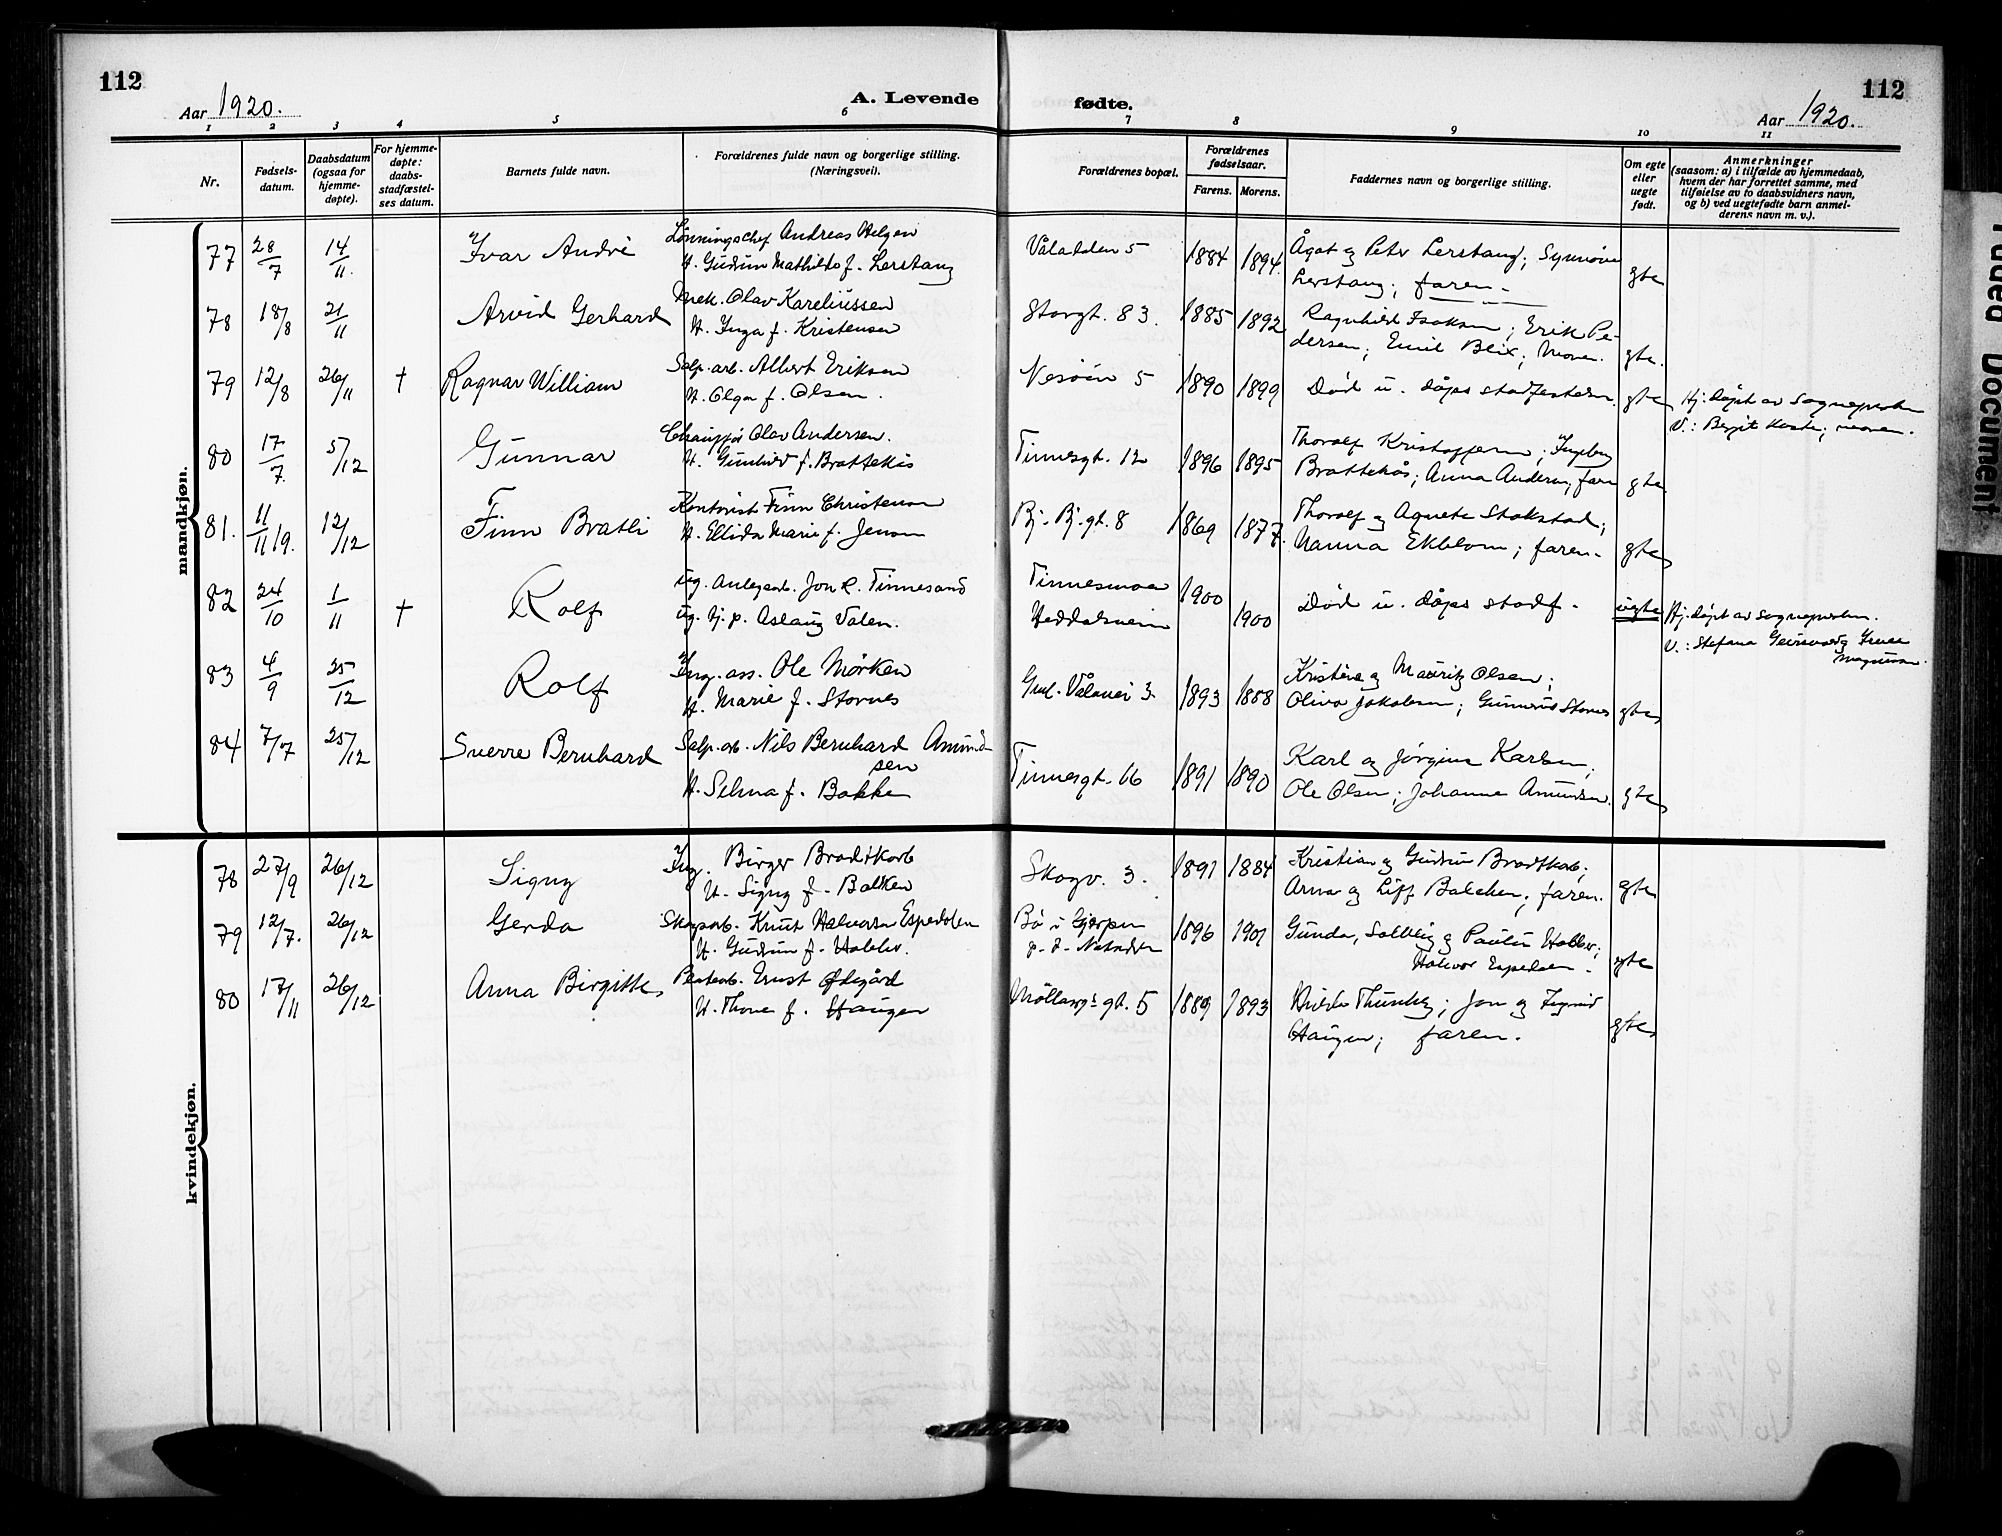 112
Aar 1920.
A. Levende
fødte.
112
Aar 1920.
1 2 3 4 5 6 7 8 9 10 11
Nr.
Fødsels-
datum.
Daabsdatum
(ogsaa for
hjemme-
døpte).
For hjemme-
døpte:
daabs-
stadfæstel-
ses datum.
Barnets fulde navn.
Forældrenes fulde navn og borgerlige stilling.
(Næringsvei).
Forældrenes bopæl.
Forældrenes
fødselsaar.
Farens. Morens.
Faddernes navn og borgerlige stilling.
Om egte
eller
uegte
født.
Anmerkninger
(saasom: a) i tilfælde av hjemmedaab,
hvem der har forrettet samme, med
tilføielse av to daabsvidners navn,
og b) ved uegtefødte barn anmel-
derens navn m. v.).
mandkjøn.
77 28/7 14/11. Ivar André Lønningschef Andreas Helgen
H. Gudrun Mathilde f. Lerstang
Våladalen 5 1884 1894 Ågot og Peter Lerstang; Synnøve
Lerstang; faren. gte
78 18/8 21/11 Arvid Gerhard Mek. Olav Kareliussen
H. Inga f. Kristensen
Storgt. 83. 1885 1892 Ragnhild Isaksen; Erik Pe-
dersen; Emil Blix; Moren. gte.
79 12/8 26/11 † Ragnar William Salp. arb. Albert Eriksen
H. Olga f. Olsen.
Nesøien 5 1890 1899 Død u. dåps stadfestelse. gte
Hj. døpt av Sognepresten
V.: Berjit Haste; moren.
80 17/7. 5/12 Gunnar Chauffør Olav Andersen.
H. Gunhild f. Brattekås
Tinnesgt. 12 1896 1895 Thoralf Kristoffersen; Ingeborg
Brattekås; Anna Andersen; faren gte
81. 11/11 19. 12/12 Finn Bratli Kontorist Finn Christensen
H. Ellida Marie f. Jensen
Bj. Bj. gt. 8 1869 1877. Thoralf og Agnete Stokstad;
Nanna Ekblom; faren. gte
82 24/10 1/11 † Rolf Ug. Anlegsarb. Jon R. Tinnesand
ug. Tj. p. Aslaug Valen.
Tinnesmoen
Heddalsveien
1900 1900 Død u. dåps stadf. uegte
Hj. døpt av Sognepresten.
V.: Stefana og
83 4/9 25/12 Rolf Ing. ass. Ole Mørken
H. Marie f. Stornes
Gml. Vålavei 3. 1893 1888 Kristine og Mauritz Olsen;
Oliva Jakobsen; Gunnerius Stornes gte
84 7/7 25/12 Sverre Bernhard Salp. arb. Nils Bernhard Amund-
sen
H. Selma f. Bakke
Tinnesgt. 16 1891 1890 Karl og Jørgine Karlsen;
Ole Olsen; Johanne Amundsen. gte
kvindekjøn.
78 27/9 26/12 Signy Ing. Birger Bradtkorb
H. Signy f. Balken
Skogv. 3. 1891 1884 Kristian og Gudrun Bradtkorb;
Arna og Liff Balchen; faren. gte
79 12/7. 26/12 Gerda Skogsarb. Knut Halvorsen Espedalen
H. Gudrun f. Holtev.
Bø i Gjerpen
p. t. Notodden
1896 1901 Gunda, Solveig og Paulin
Halvor Espedalen. gte
80 17/11 26/12 Anna Birgitte Ernst Ødegård
H. Thone f. Haugen
Møllargt. 5 1889 1893 Hilda Thunby; Jon og Ingrid
Haugen; faren. gte